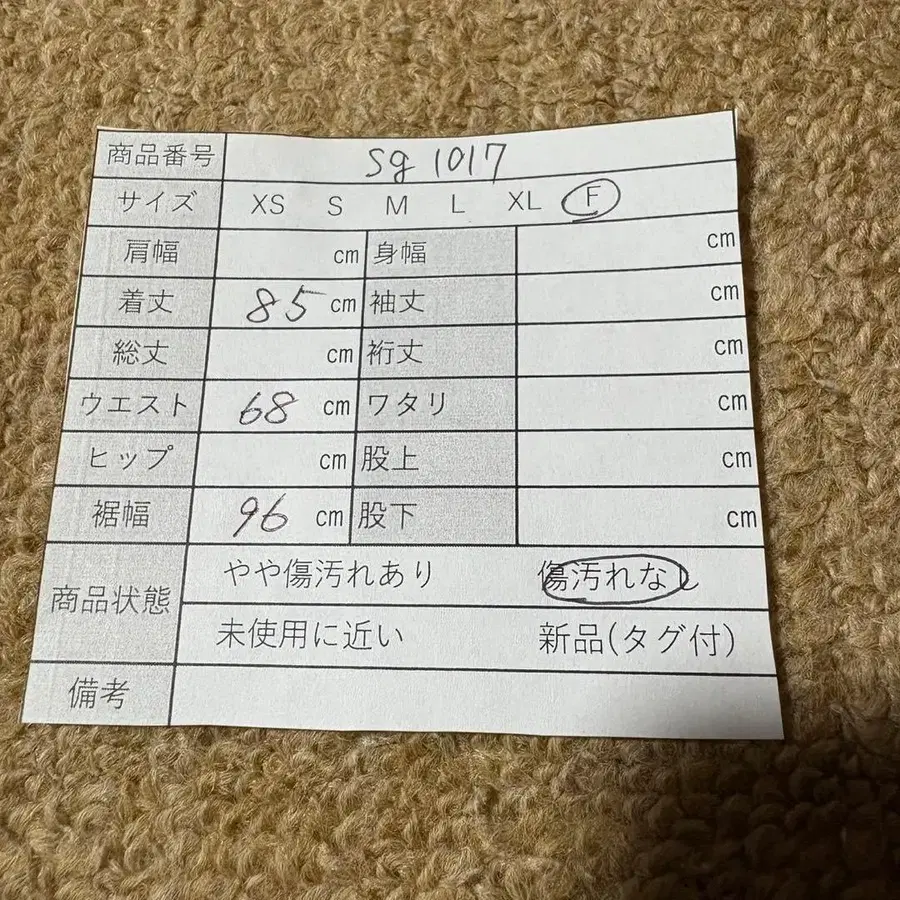 商品番号 sg 1017
サイズ XS S M L XL F
肩幅 cm 身幅 cm
着丈 85 cm 袖丈 cm
総丈 cm 裄丈 cm
ウエスト 68 cm ワタリ cm
ヒップ cm 股上 cm
裾幅 96 cm 股下 cm
商品状態 やや傷汚れあり 傷汚れなし
未使用に近い 新品(タグ付)
備考